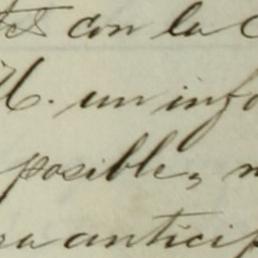 con la
U. un info
posible,
ra anticip